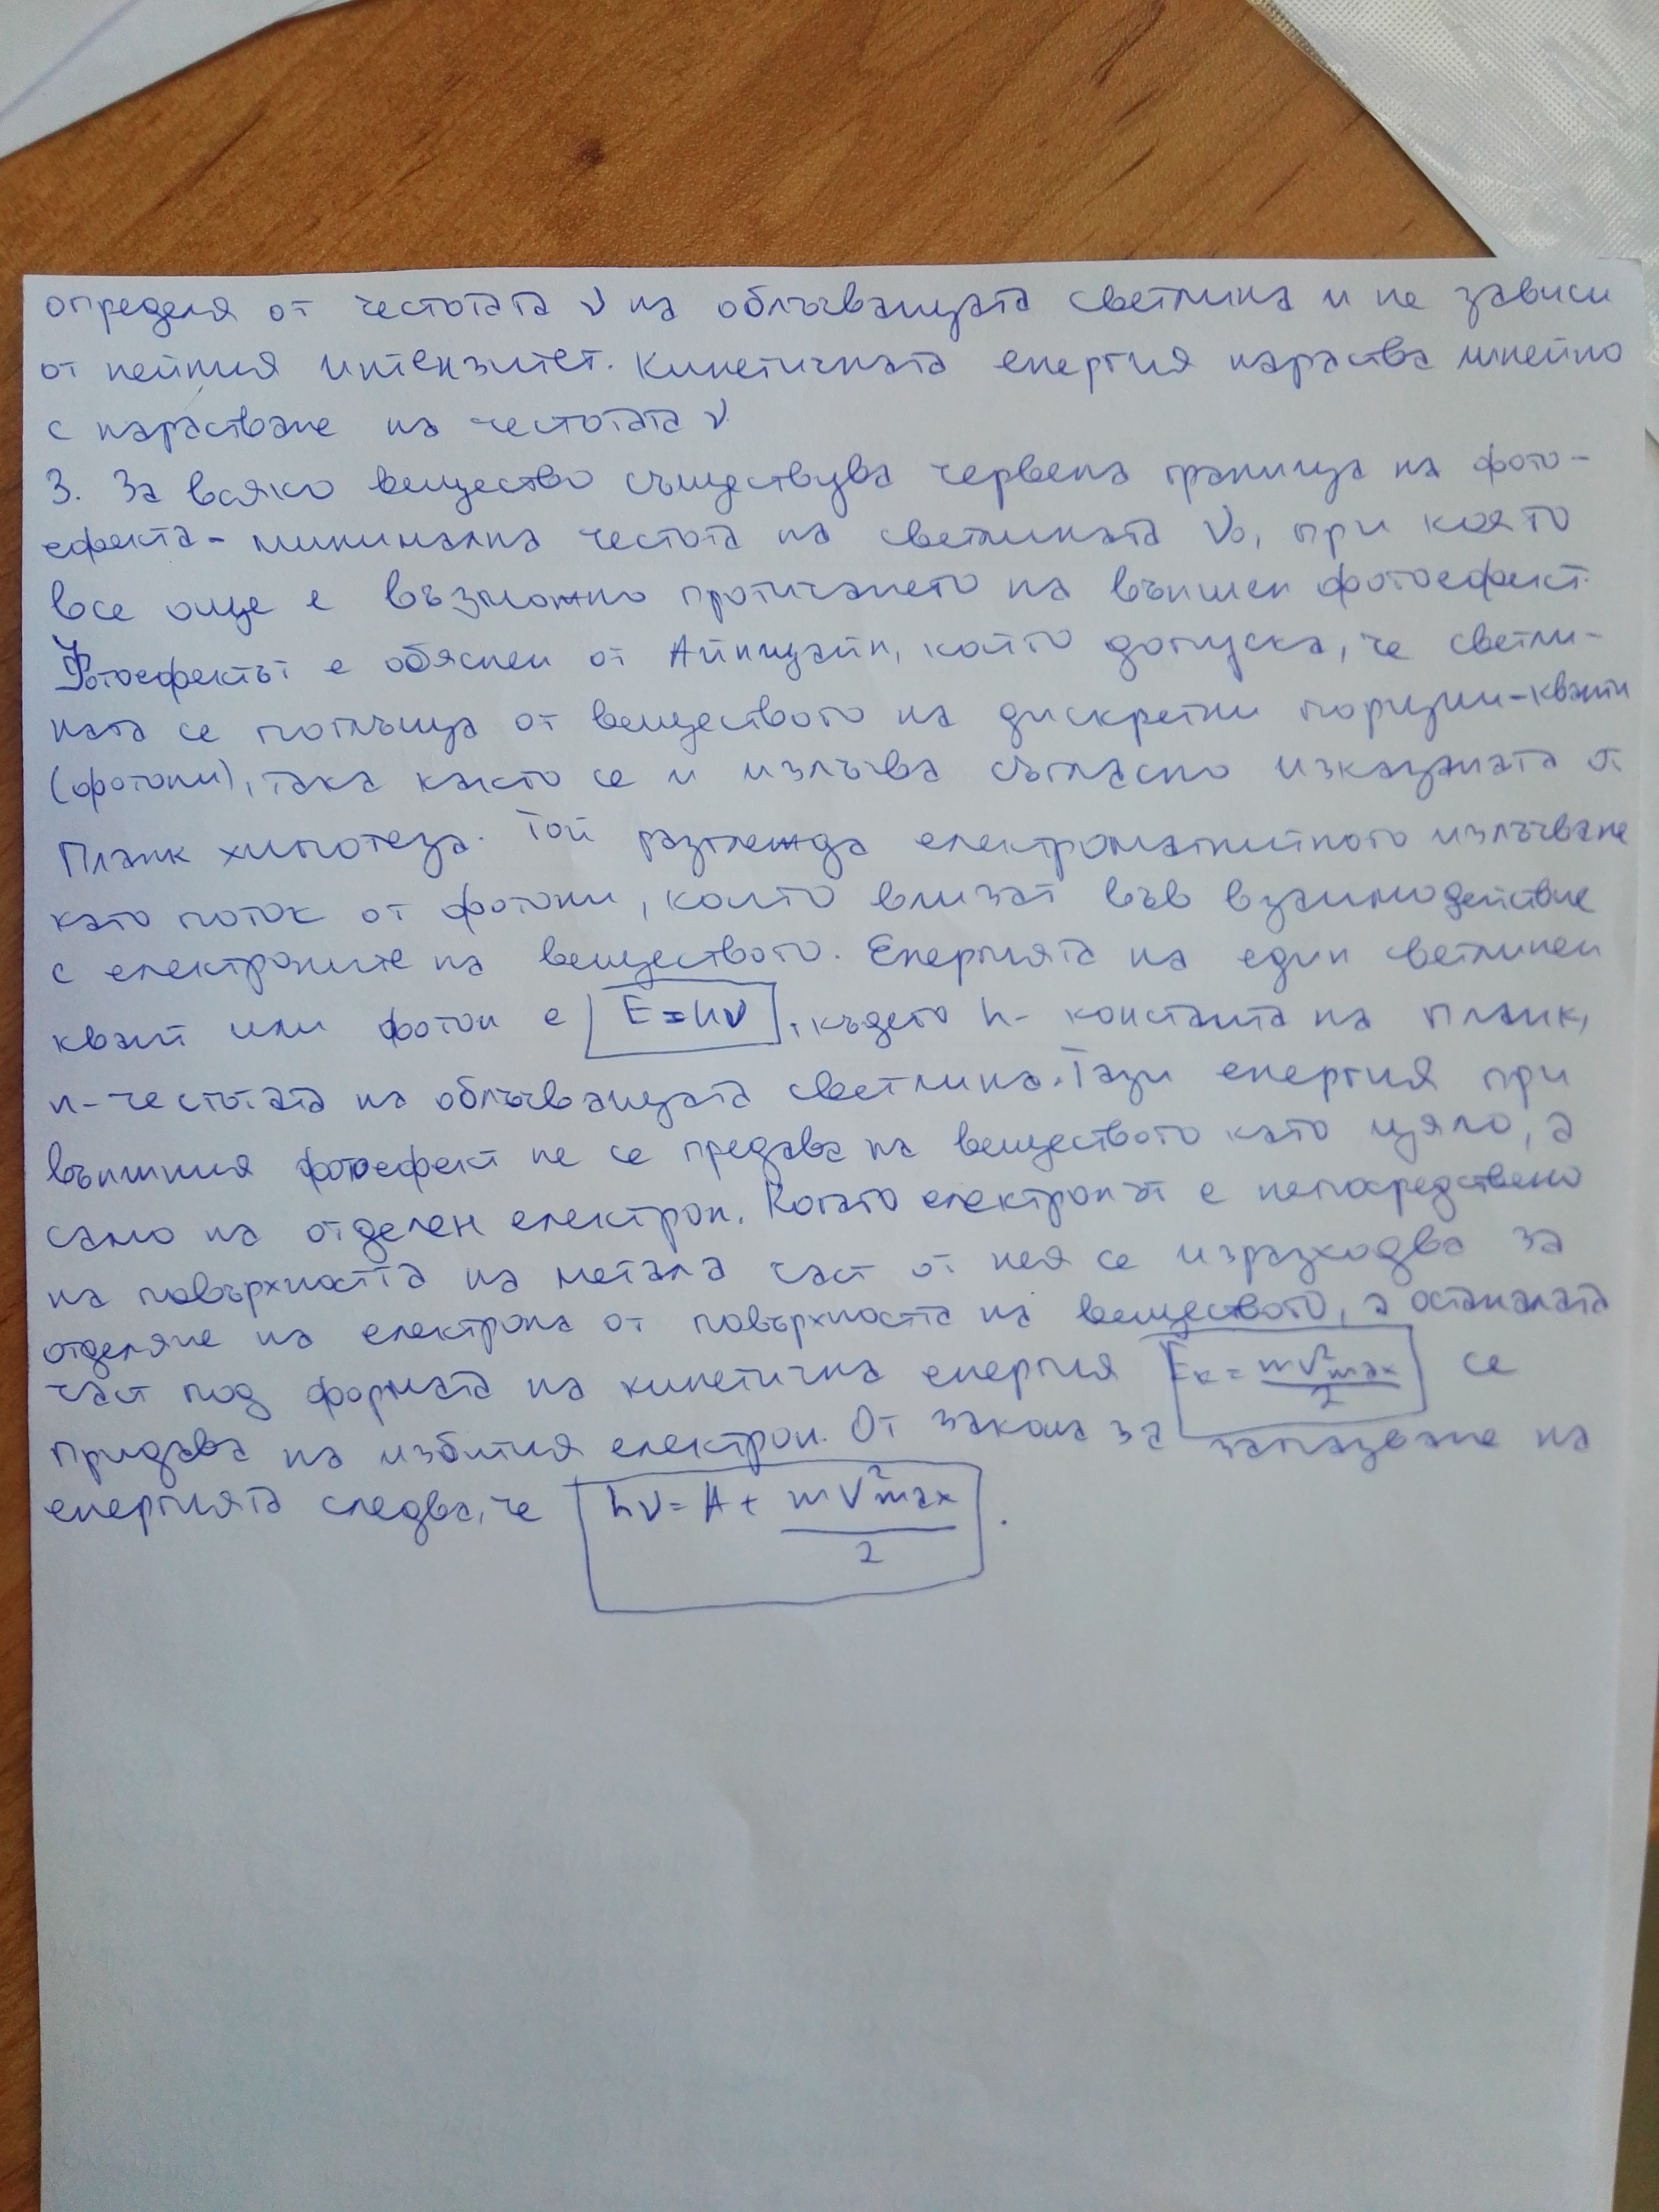 определя от честотата ν на облъчващата светлина и не зависи
от нейния интензитет. Кинетичната енергия нараства линейно
с нарастване на честотата ν
3. За всяко вещество съществува червена граница на фото-
ефекта - минимална честота на светлината ν₀, при която
все още е възможно протичането на външен фотоефект.
Фотоефектът е обяснен от Айнщайн, който допуска, че светли-
ната се поглъща от веществото на дискретни порции-кванти
(фотони), така както се и излъчва съгласно изказаната от
Планк хипотеза. Той разглежда електромагнитното излъчване
като поток от фотони, които влизат във взаимодействие
с електроните на веществото. Енергията на един светлинен
квант или фотон е E=hν, където h- константа на Планк,
н-честотата на облъчващата светлина. Тази енергия при
външния фотоефект не се предава на веществото като цяло, а
само на отделен електрон. Когато електронът е непосредствено
на повърхността на метала част от нея се изразходва за
отделяне на електрона от повърхността на веществото, а останалата
част под формата на кинетична енергия Eк = mV²max/2 се
придава на избития електрон. От закона за запазване на
енергията следва, че hν = A + mV²max/2.